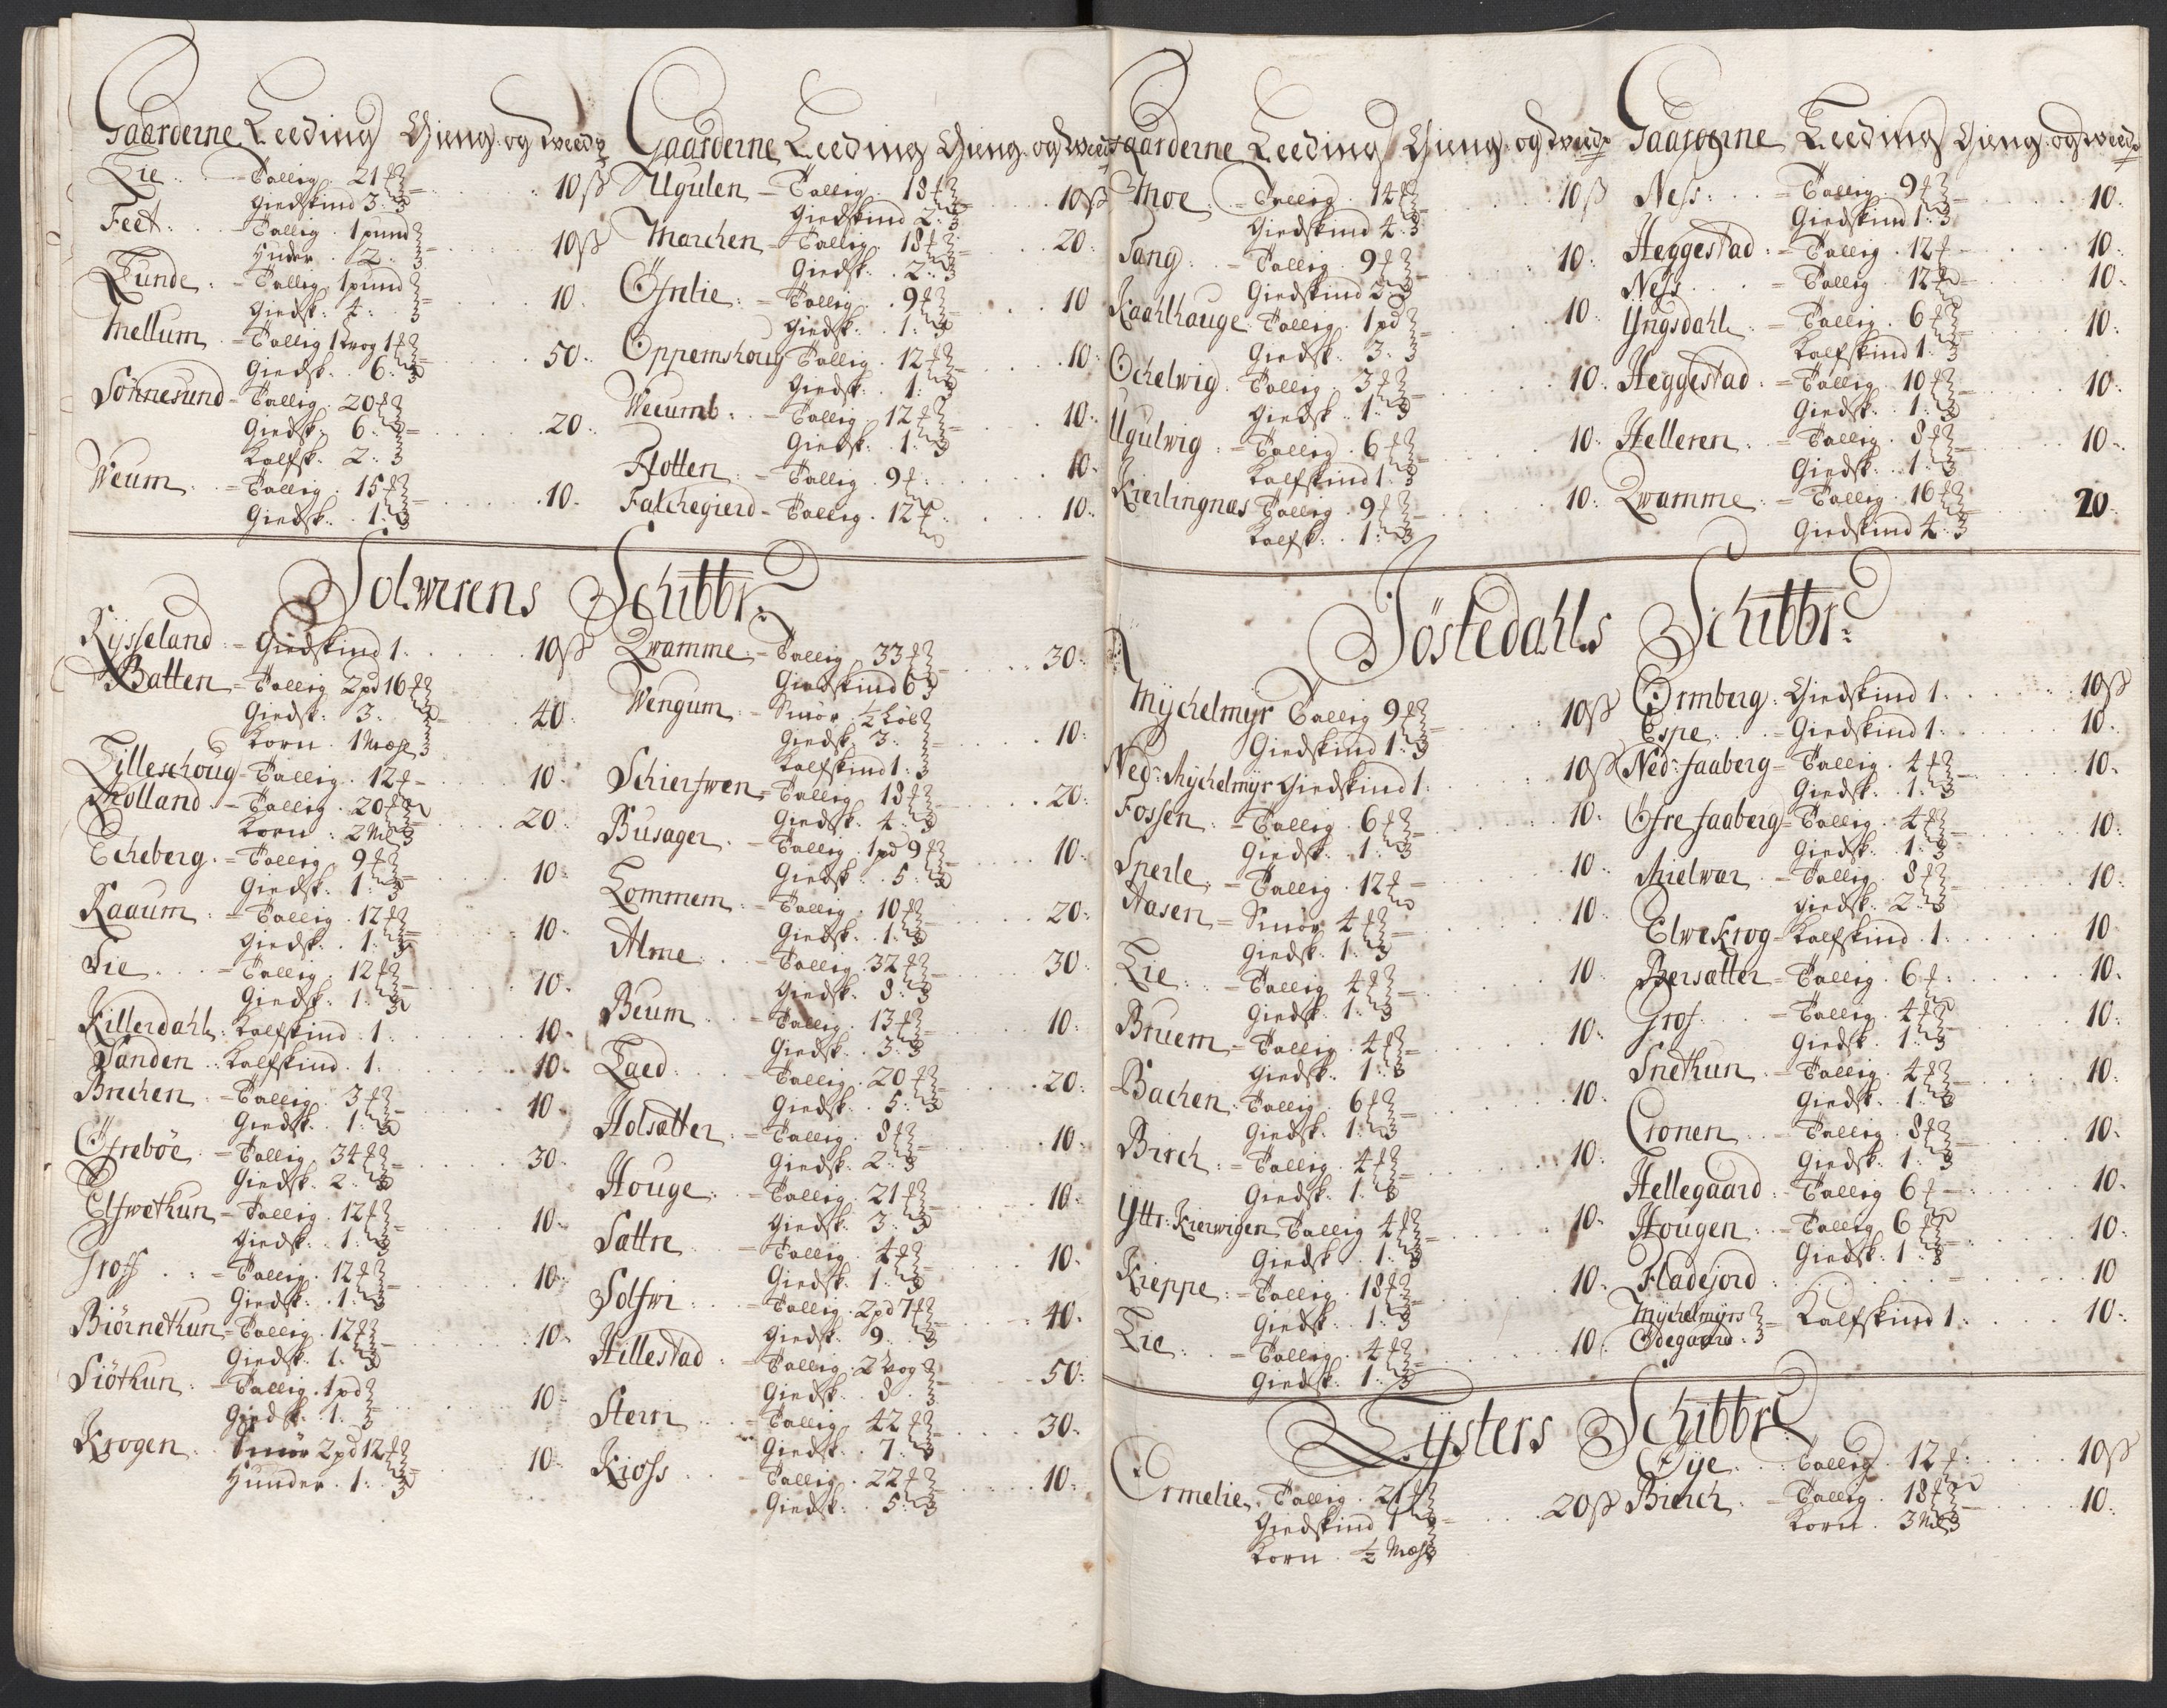 Gaarderne Leeding Gieng: og weedp
Lie: Tallig 21 ℔ 10 ß
Giedskind 3:
Feet: Tallig 1 pund 10 ß
Huder 2:
Lunde: Tallig 1 pund 10:
Giedsk: 4:
Mellum Tallig 1 wog 1 ℔ 50:
Giedsk: 6:
Sönnesund Tallig 20 ℔ 20:
Giedsk: 6:
Kalfsk: 2:
Weum Tallig 15 ℔ 10:
Giedsk: 1:
Gaarderne Leeding Gieng: og weedp
Ugulen Tallig 18 ℔ 10 ß
Giedskind 2:
Marchen Tallig 18 ℔ 20:
Giedsk: 2:
Öfrelie Tallig 9 ℔ 10
Giedsk: 1:
Oppemshoug Tallig 12 ℔ 10:
Giedsk: 1:
Weeumb: Tallig 12 ℔ 10:
Giedsk: 1:
Flotten: Tallig 9 ℔: 10:
Falchegierd Tallig 12 ℔: 10:
Solwerens Schibbr:
Kysseland Giedskind 1 10 ß
Batten Tallig 2 pd 16 ℔ 40
Giedsk: 3:
Korn 1 Mæhl
Lilleschoug Tallig 12 ℔ 10:
Molland Tallig 20 ℔ 20:
Korn: 2 Ml
Echeberg Tallig 9 ℔ 10:
Giedsk: 1:
Kaaum Tallig 12 ℔ 10:
Giedsk: 1:
Lie Tallig 12 ℔ 10:
Giedsk: 1:
Killerdahl: Kalfskind 1 10:
Sanden Kalfskind 1: 10:
Brechen Tallig 3 ℔ 10:
Giedsk: 1:
Öfreböe Tallig 34 ℔ 30:
Giedsk: 2:
Elfwethun Tallig 12 ℔ 10:
Giedsk: 1:
Proft Tallig 12 ℔ 10:
Giedsk: 1:
Biörnethun Tallig 12 ℔ 10:
Giedsk: 1:
Siöthun Tallig 1 pd 10:
Giedsk: 1:
Krogen Smör 2 pd 12 ℔ 10:
Hunder 1:
Qwamme Tallig 33 ℔ 30:
Giedskind 6
Wengum Smör ½ Löb 10:
Giedsk: 3:
Kalfskind 1:
Schierfwen Tallig 18 ℔ 20:
Giedsk: 4:
Busager Tallig 1 pd 9 ℔ 10:
Giedsk: 5:
Lommem Tallig 10 ℔ 20:
Giedsk: 1:
Alme: Tallig 32 ℔ 30:
Giedsk: 8:
Beum Tallig 13 ℔ 10:
Giedsk: 3:
Laed: Tallig 20 ℔ 20:
Giedsk: 5:
Holsætter Tallig 8 ℔ 10:
Giedsk: 2:
Houge: Tallig 21 ℔ 10:
Giedsk: 3:
Sættre Tallig 4 ℔ 10:
Giedsk: 1:
Solfwi: Tallig 2 pd 7 ℔ 40:
Giedsk: 9:
Hillestad Tallig 2 wog 50:
Giedsk: 8
Sterri Tallig 42 ℔ 30:
Giedsk: 7:
Kioss Tallig 22 ℔ 10:
Giedsk: 5:
Gaarderne Leeding Gieng: og weedp
Moe: Tallig 14 ℔ 10 ß
Giedskind 4:
Tang: Tallig 9 ℔ 10:
Giedskind 2:
Kaahlhauge Tallig 1 pd 10:
Giedsk: 3:
Ochelwig Tallig 3 ℔ 10:
Giedsk: 1:
Ugulwig: Tallig 6 ℔ 10:
Kalfskind 1:
Kierlingnæs Tallig 9 ℔ 10:
Kalfsk: 1:
Gaarderne Leeding Gieng: og weedp
Ness: Tallig 9 ℔ 10:
Giedskind 1:
Heggestad: Tallig 12 ℔ 10:
Ness Tallig 12 ℔ 10:
Yngsdahl Tallig 6 ℔ 10:
Kalfskind 1:
Heggestad: Tallig 10 ℔ 10:
Giedsk: 1:
Helleren: Tallig 8 ℔ 10:
Giedsk: 1:
Qwamme: Tallig 16 ℔ 20:
Giedskind 4:
Jöstedahls Schibbr:
Mychelmyr Tallig 9 ℔ 10 ß
Giedskind 1:
Ned: Mychelmyr Giedskind 1: 10 ß
Fossen: Tallig 6 ℔ 10:
Giedsk: 1:
Sperle: Tallig 12 ℔ 10:
Aasen Smör 4 ℔ 10:
Giedsk: 1:
Lie: Tallig 4 ℔ 10:
Giedsk: 1:
Bruem Tallig 4 ℔ 10:
Giedsk: 1:
Bachen: Tallig 6 ℔ 10:
Giedsk: 1:
Birch: Tallig 4 ℔ 10:
Giedsk: 1:
Yttr: Kierwigen Tallig 4 ℔ 10:
Giedsk: 1:
Kieppe: Tallig 18 ℔ 10:
Giedsk: 1:
Lie: Tallig 4 ℔ 10:
Giedsk: 1:
Ormberg: Giedskind 1: 10 ß
Espe: Giedskind 1: 10:
Ned: faaberg Tallig 4 ℔ 10:
Giedsk: 1:
Öfre faaberg Tallig 4 ℔ 10:
Giedsk: 1:
Mielwær Tallig 8 ℔ 10:
Giedsk: 2:
Elwekrog Kalfskind 1: 10
Bersætter Tallig 6 ℔: 10:
Prof: Tallig 4 ℔ 10:
Giedsk: 1:
Snethun Tallig 4 ℔ 10:
Giedsk: 1:
Cronen Tallig 8 ℔ 10:
Giedsk: 1:
Hellegaard Tallig 6 ℔ 10:
Hougen: Tallig 6 ℔ 10:
Giedsk: 1:
Fladejord: 10
Mychelmyrs Kalfskind 1: 10:
Ödegaard:
Lysters Schibbr:
Ormelie Tallig 21 ℔ 20 ß
Giedskind 1
Korn ½ Mæhl
Öye Tallig 12 ℔: 10 ß
Bierch: Tallig 18 ℔ 10:
Korn 3 Ml